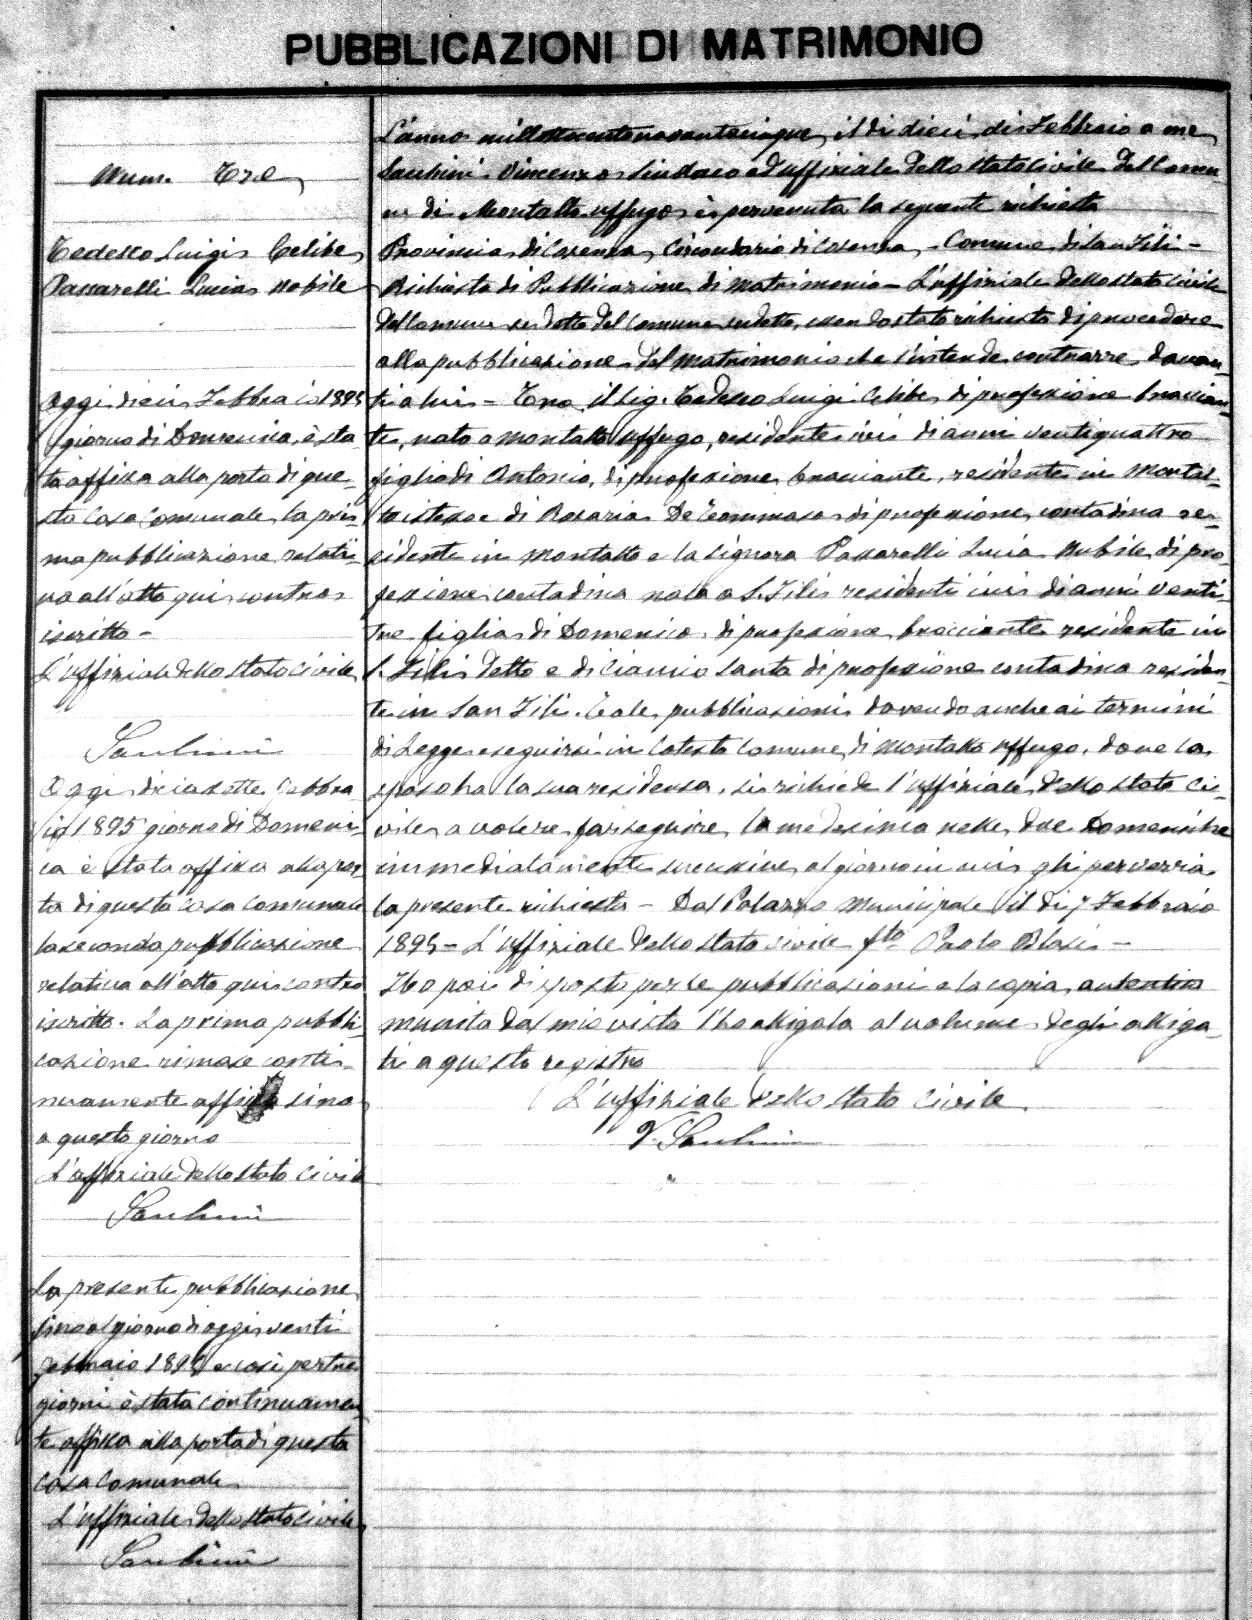 PUBBLICAZIONI DI MATRIMONIO
Num. Tre
Tedesco Luigi Celibe
Passarelli Lucia nobile
Oggi dieci Febbraio 1895
giorno di Domenica, è sta-
ta affissa alla porta di que-
sta Casa Comunale la pri-
ma pubblicazione relati-
va all'atto qui contro
iscritto -
L'uffiziale dello stato Civile
Oggi diciasette Febbra-
io 1895 giorno di Domeni-
ca è stata affissa alla por-
ta di questa Casa Comunale
la seconda pubblicazione
relativa all'atto qui contro
iscritto. La prima pubbli-
cazione rimase conti-
nuamente affissa sino
a questo giorno
L'uffiziale dello stato Civile
La presente pubblicazione
sino al giorno di oggi venti
Febbraio 1895 e così per tre
giorni è stata continuamen-
te affissa alla porta di questa
Casa Comunale
L'uffiziale dello stato Civile
L'anno milleottocentonovantacinque, il dì dieci di Febbraio a me
Vincenzo Sindaco ed uffiziale dello stato Civile del Comu-
ne di Montalto uffugo è pervenuta la seguente richiesta
Provincia di Cosenza, Circondario di Cosenza - Comune di San Fili -
Richiesta di Pubblicazione di matrimonio - L'uffiziale dello stato Civile
del Comune sudetto, essendo stato richiesto di procedere
alla pubblicazione del matrimonio che s'intende contrarre davan-
ti a lui - Tra il Sig. Tedesco Luigi Celibe di professione braccian-
te, nato a Montalto Uffugo, residente ivi di anni ventiquattro
figlio di Antonio, di professione bracciante, residente in Montal-
to istesso e di Rosaria De Tommaso di professione contadina re-
sidente in Montalto e la Signora Passarelli Lucia Nubile di pro-
fessione contadina nata a S. Fili residente ivi di anni venti-
tre figlia di Domenico di professione bracciante residente in
S. Fili detto e di Ciancio Santa di professione contadina residen-
te in San Fili. E tale pubblicazioni dovendo anche ai termini
di Legge eseguirsi in Cotesto Comune di Montalto uffugo, dove lo
sposo ha la sua residenza, si richiede l'uffiziale dello stato Ci-
vile a volere far seguire la medesima nelle due Domeniche
immediatamente successive al giorno in cui gli perverrà
la presente richiesta - Dal Palazzo Municipale il dì 7 Febbraio
1895 - L'uffiziale dello stato civile fto Paolo Blasi -
Ho poi disposto per le pubblicazioni e la copia autentica
munita dal mio visto l'ho alligata al volume degli alliga-
ti a questo registro
L'uffiziale dello stato Civile